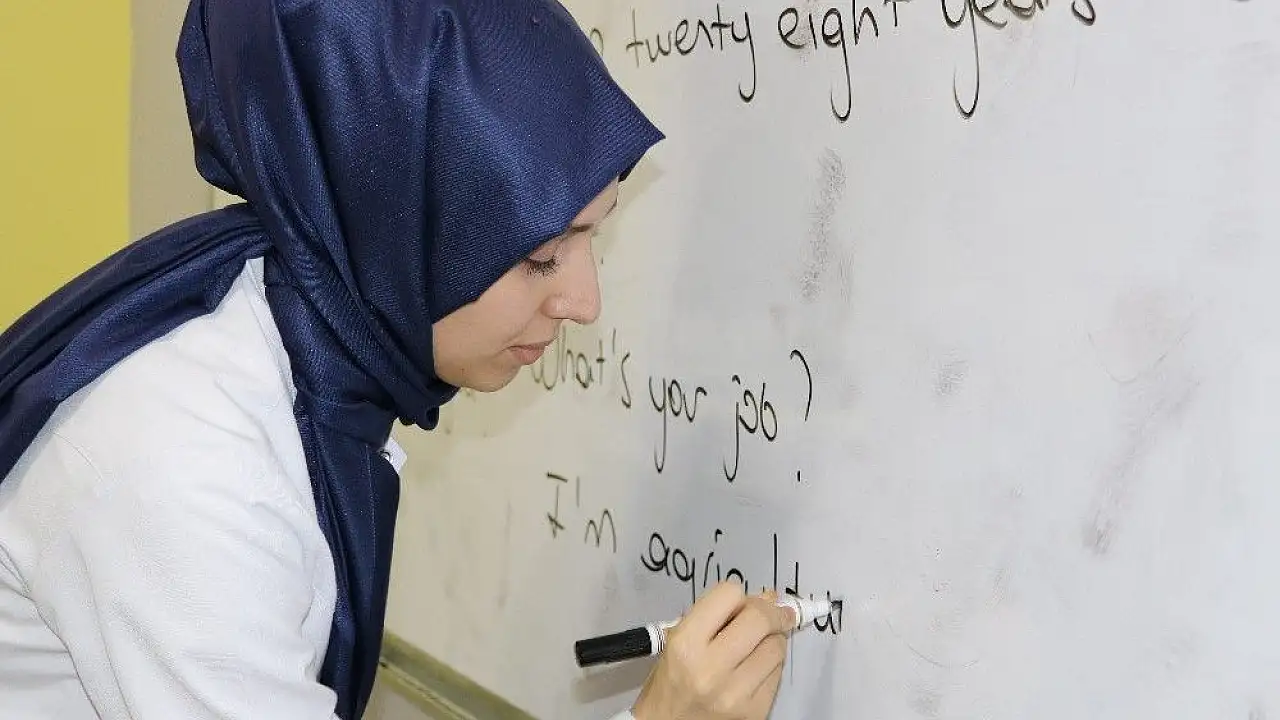 twenty eight years
What's your job?
I'm agricultur